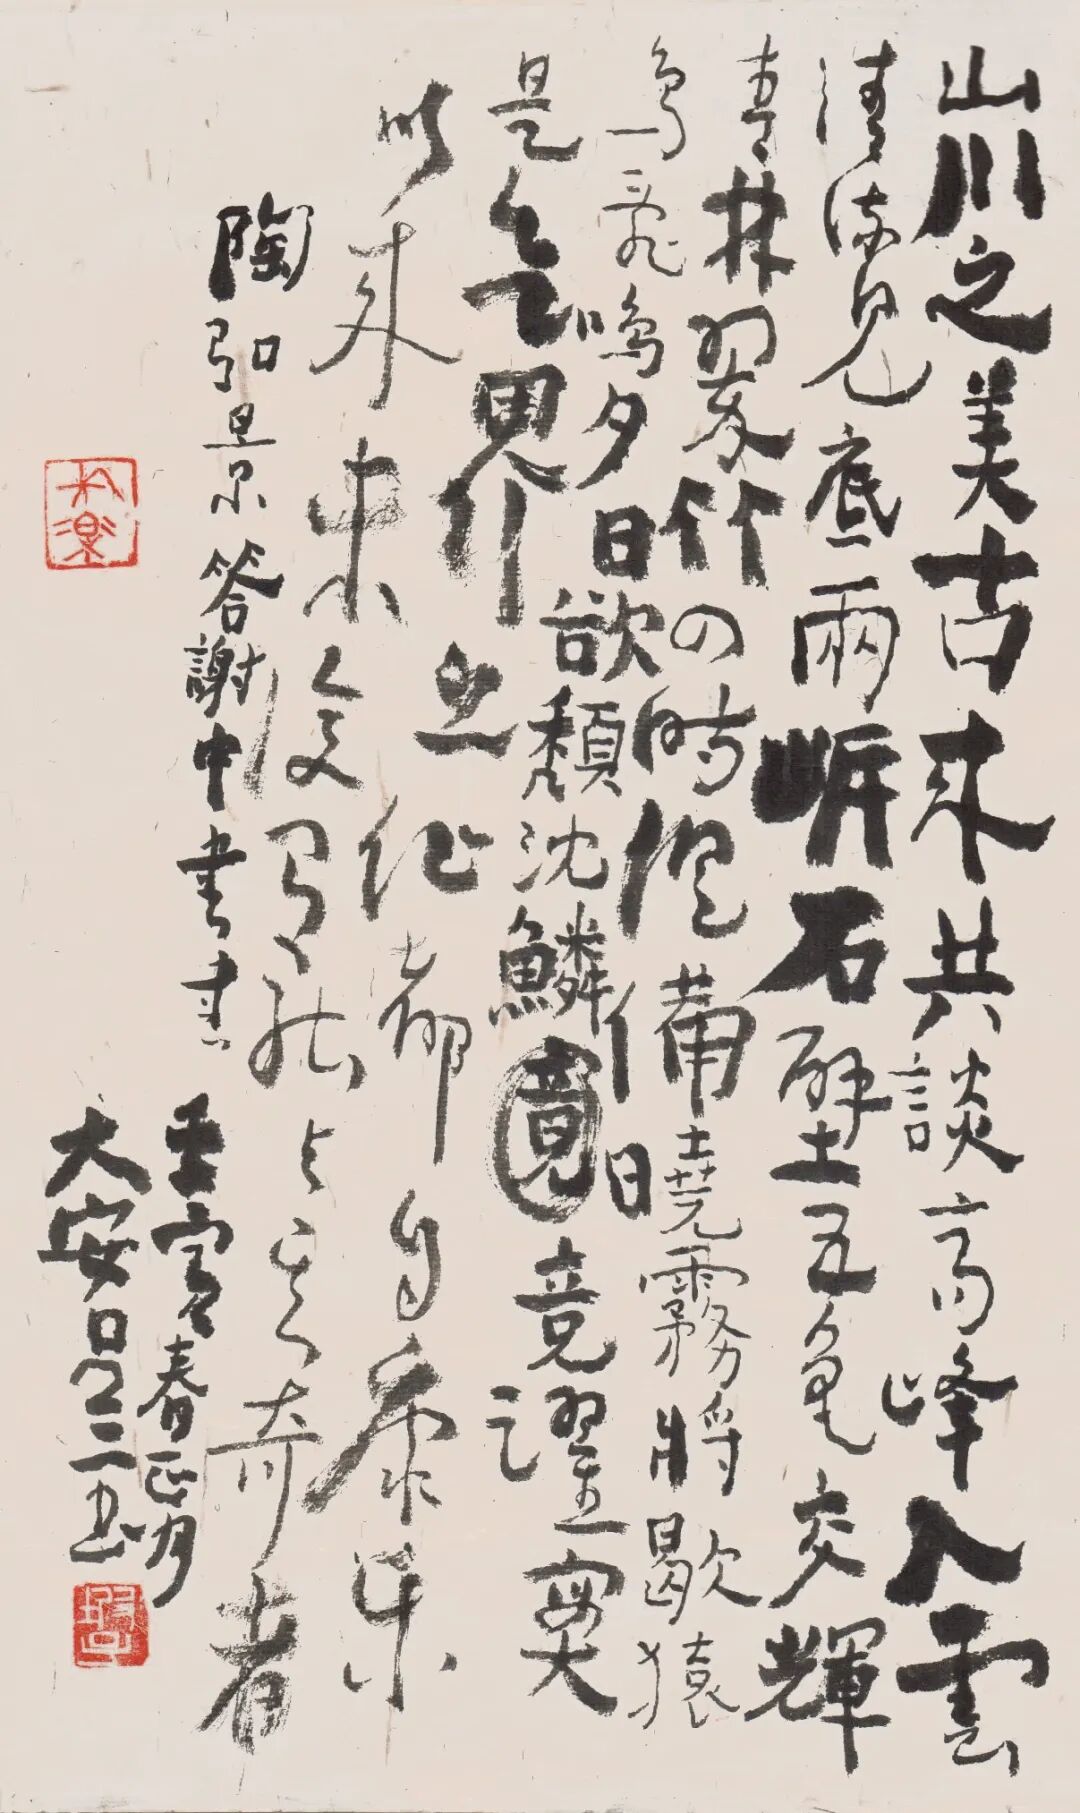 山川之美古來共談高峰入雲
清流見底兩岸石壁五色交輝
青林翠竹四時俱備曉霧將歇猿
鳥亂鳴夕日欲頹沈鱗竟竟躍實
是界之仙都自康樂
以來未復有能與其奇者
陶弘景答謝中書書
壬寅春正月
大安呂三書